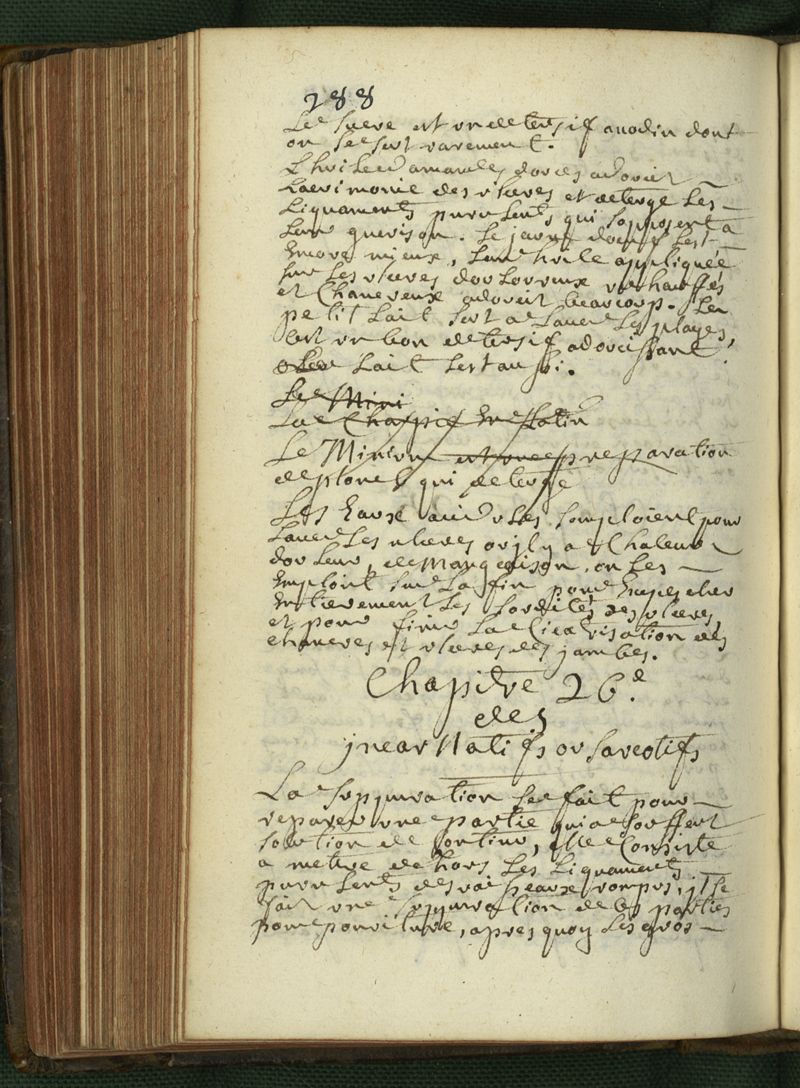 288
Le sucre est un detersif anodin dont
on se sert rarement.
L'huile d'amandes douces adoucit
L'acrimonie des ulceres et deterge Les
Liquaments purulents qui s'opposent a
Leur guerison. Le jaune d'oeuf L'est
Encore mieux, Leur huile appliquée
sur Les ulceres douloureux rechauffés
et Chancreux adoucit beaucoup. Le
petit Lait sert a Laver Les playes,
est un bon detersif adoucissant
Le Lait L'est aussi.
Le Mini
La Chappif En flatin
Le Minium est une preparation
de plomb qui deterge
Les Eaux acidules s'emploient pour
Laver Les ulceres ou jl y a Chaleur
douleur, demangeaison, on Les
Emploit sur La fin pour Empescher
Entierement Les sordités des ulceres,
et pour finir La Cicatrisation des
chancres et ulceres des jambes.
Chapitre 26.e
des
jncarnatifs ou sarcotifs
La suppuration se fait pour
reparer une partie qui a souffert
solution de continu, elle Consiste
a metre dehors Les Liquaments
purulents des vaisseaux rompus, jl se
fait une suppuration de ces parties
pour pouriture, apres quoy Les gros